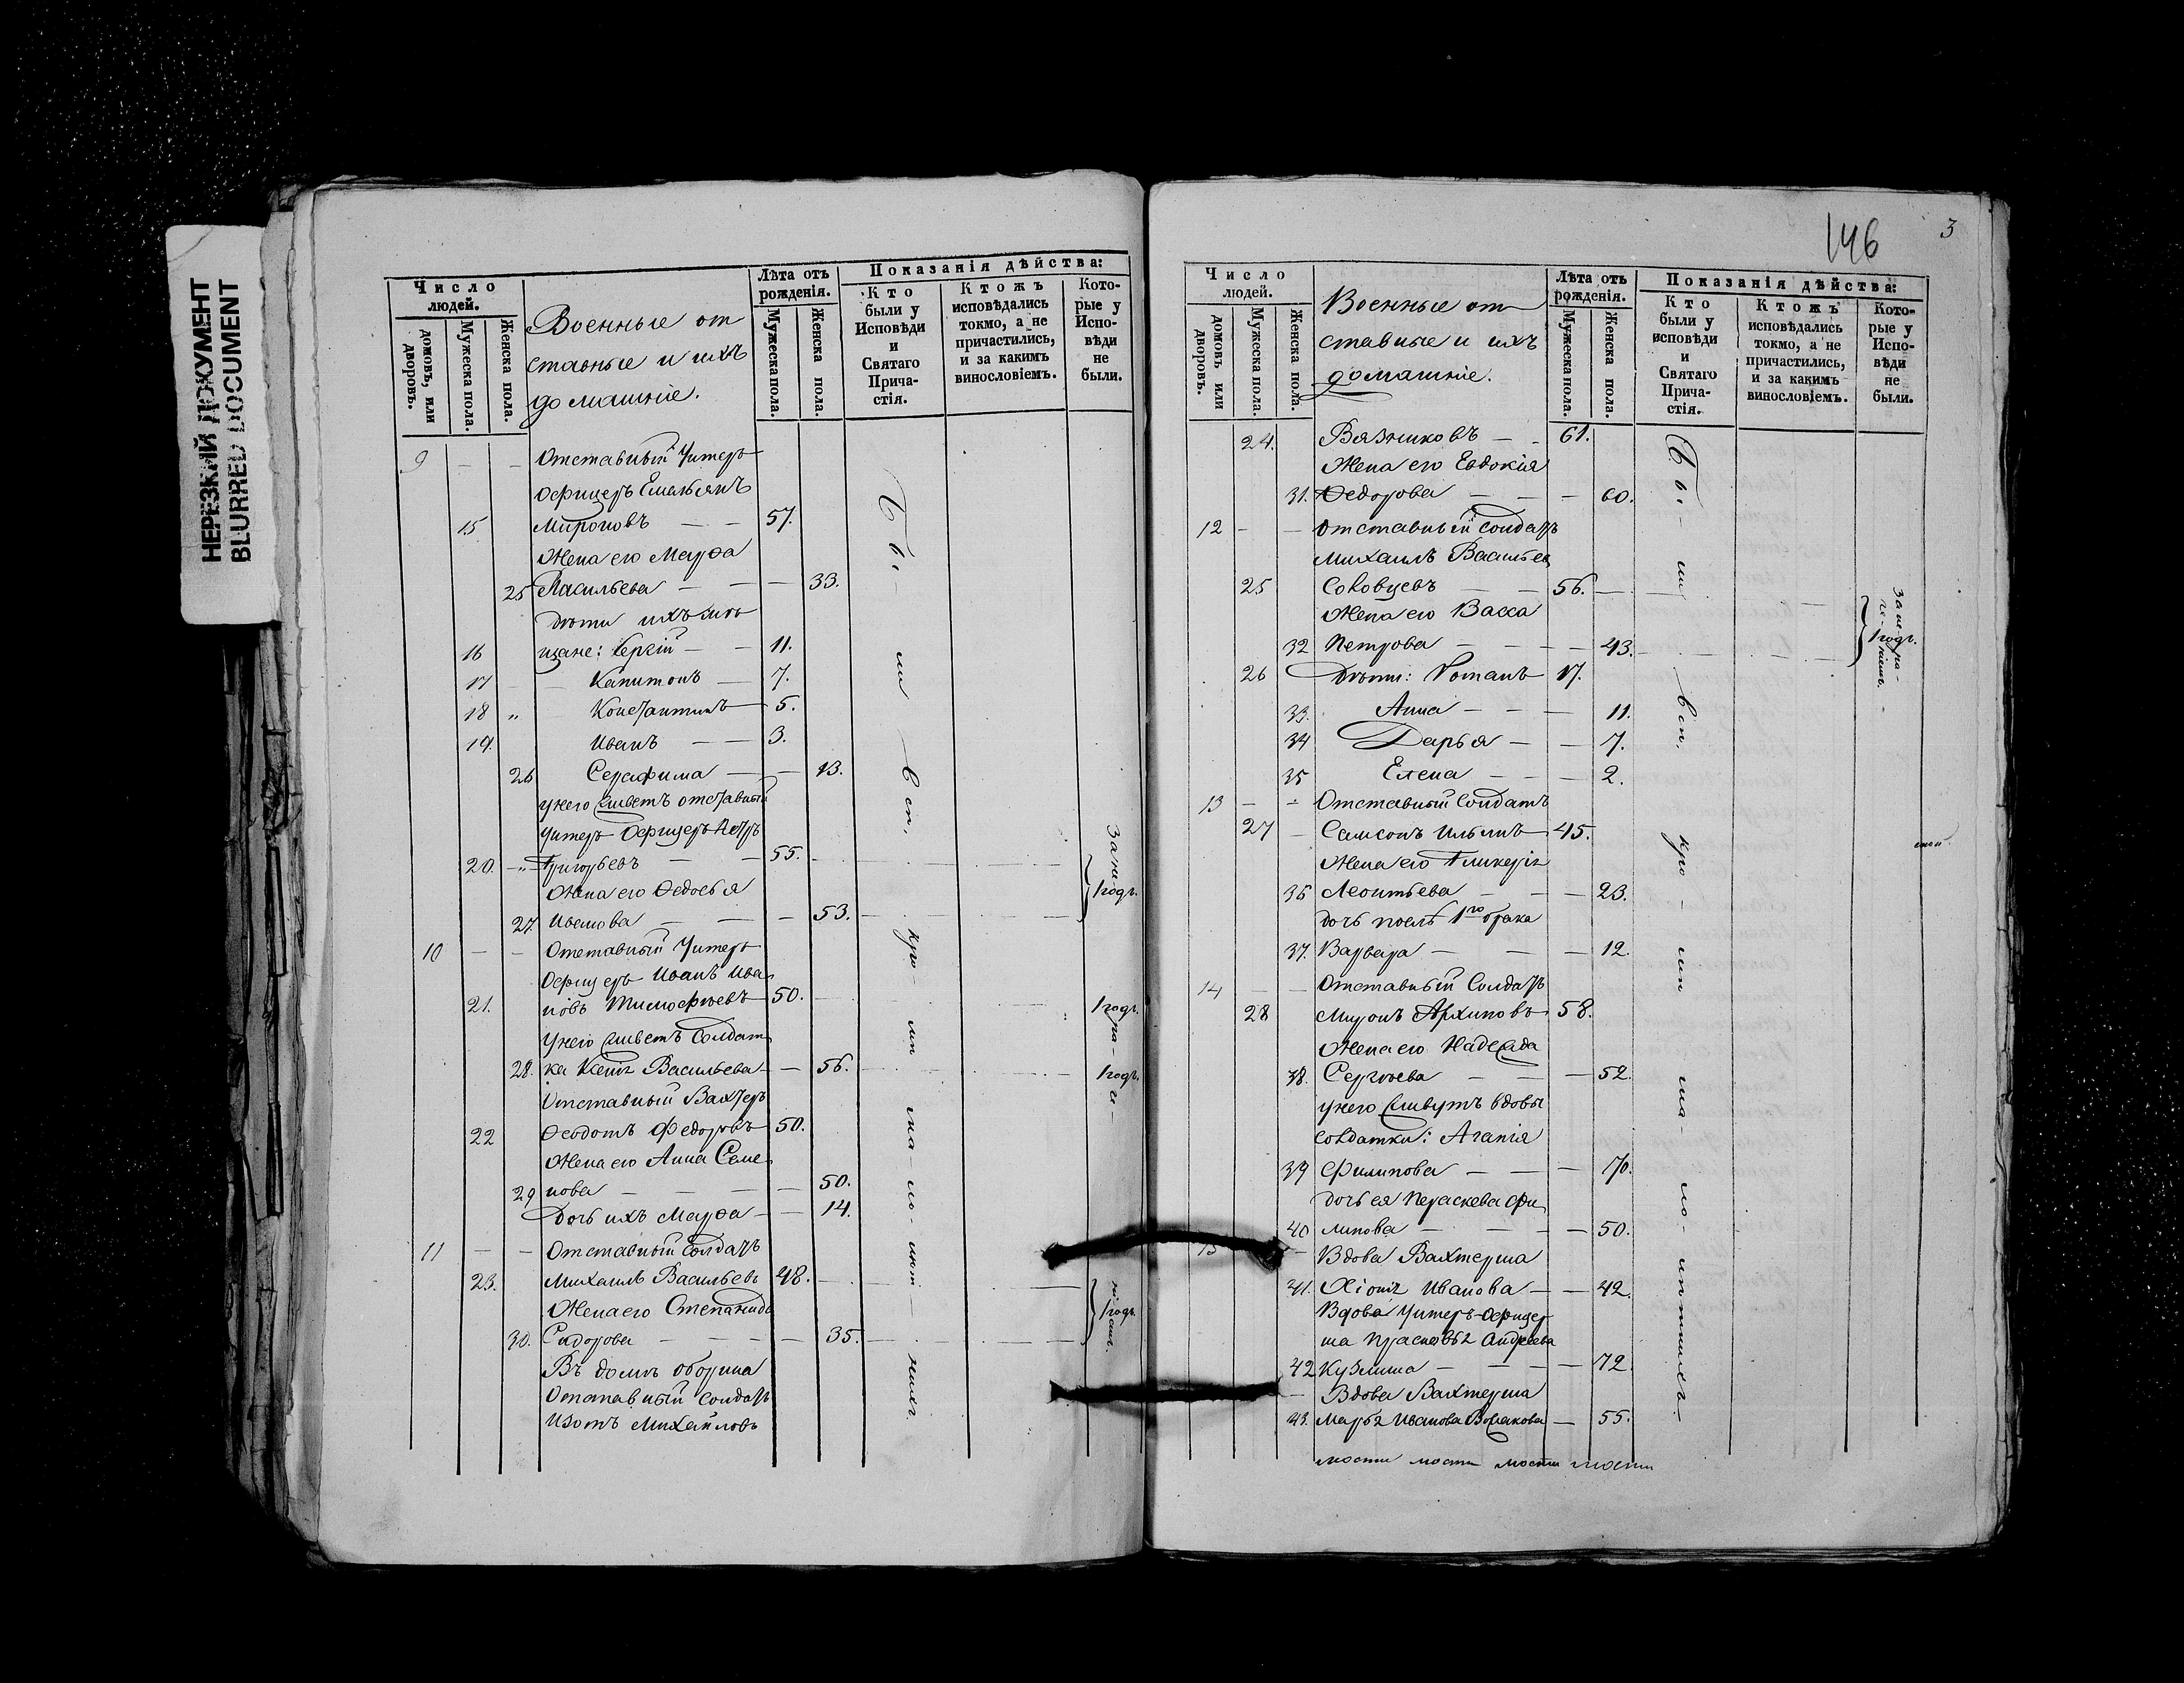 НЕРЕЗКИЙ ДОКУМЕНТ
BLURRED DOCUMENT
Число людей.
домовъ, или дворовъ.
Мужеска пола.
Женска пола.
Военные от
ставные и ихъ
домашніе.
Лѣта отъ рожденія.
Мужеска пола.
Женска пола.
Показанія дѣйства:
Кто были у Исповѣди и Святаго Причастія.
Ктожъ исповѣдались токмо, а не причастились, и за какимъ винословіемъ.
Которые у Исповѣди не были.
9 — — Отставный Унтеръ
Офицеръ Емельянъ
15. Мироновъ — — 57.
Жена его Марѳа
25 Васильева — — — 33.
Дѣти ихъ
16 щане: Сергій — — 11.
17 Капитонъ — 7.
18 „ Константинъ 5.
19. Иванъ — — 3.
26 Серафима — — 13.
У него живетъ отставный
Унтеръ Офицеръ Петръ
20. Григорьевъ — — 55.
Жена его Ѳедосья
27. Иванова — — — 53.
1 годъ.
10 — — Отставный Унтеръ
Офицеръ Иванъ Ива
21. новъ Тимофѣевъ 50.
1 годъ.
У него живетъ Солдат
28. ка Васильева — — 56.
1 годъ.
Отставный Вахтеръ
22 Ѳеодотъ Федоровъ 50.
Жена его Анна Семе
29 нова — — — — 50.
Дочь ихъ Марѳа — — 14.
11 — — Отставный Солдатъ
23. Михаилъ Васильевъ 48.
Жена его Степанида
30. Сидорова — — — — 35.
1 годъ.
Въ домѣ
Отставный Солдатъ
Изотъ Михайловъ
146
3
Число людей.
домовъ или дворовъ.
Мужеска пола.
Женска пола.
Военные от
ставные и ихъ
домашніе.
Лѣта отъ рожденія.
Мужеска пола.
Женска пола.
Показанія дѣйства:
Кто были у исповѣди и Святаго Причастія.
Ктожъ исповѣдались токмо, а не причастились, и за какимъ винословіемъ.
Которые у Исповѣди не были.
24. Вязниковъ — — 61.
Жена его Евдокія
31. Ѳедорова — — — 60.
12 — — Отставный Солдатъ
Михаилъ Васильев
25 — — 56.
Жена его Васса
32 Петрова — — — 43.
1 годъ.
26 Дѣти: Романъ 17.
33. Анна — — — 11.
34 Дарья — — 7.
35 Елена — — — 2.
13 — — Отставный Солдатъ
27 — Самсонъ Ильинъ 45.
Жена его Гликерія
36 Леонтьева — — — 23.
дочь послѣ 1го брака
37. Варвара — — — 12.
14 — — Отставный Солдатъ
28 Миронъ Архиповъ 58.
Жена его Надежда
38. Сергѣева — — — 52.
У него живутъ вдовы
солдатки: Агапія
39 Филипова — — — 70.
Дочь ея Параскева Фи
40 липова — — — 50.
15 — Вдова Вахтерша
41. Хіонія Иванова — — 42.
Вдова Унтеръ-Офицер
ша Андреева
42 Кузмина — — — 72.
Вдова Вахтерша
43. Марья Иванова — 55.